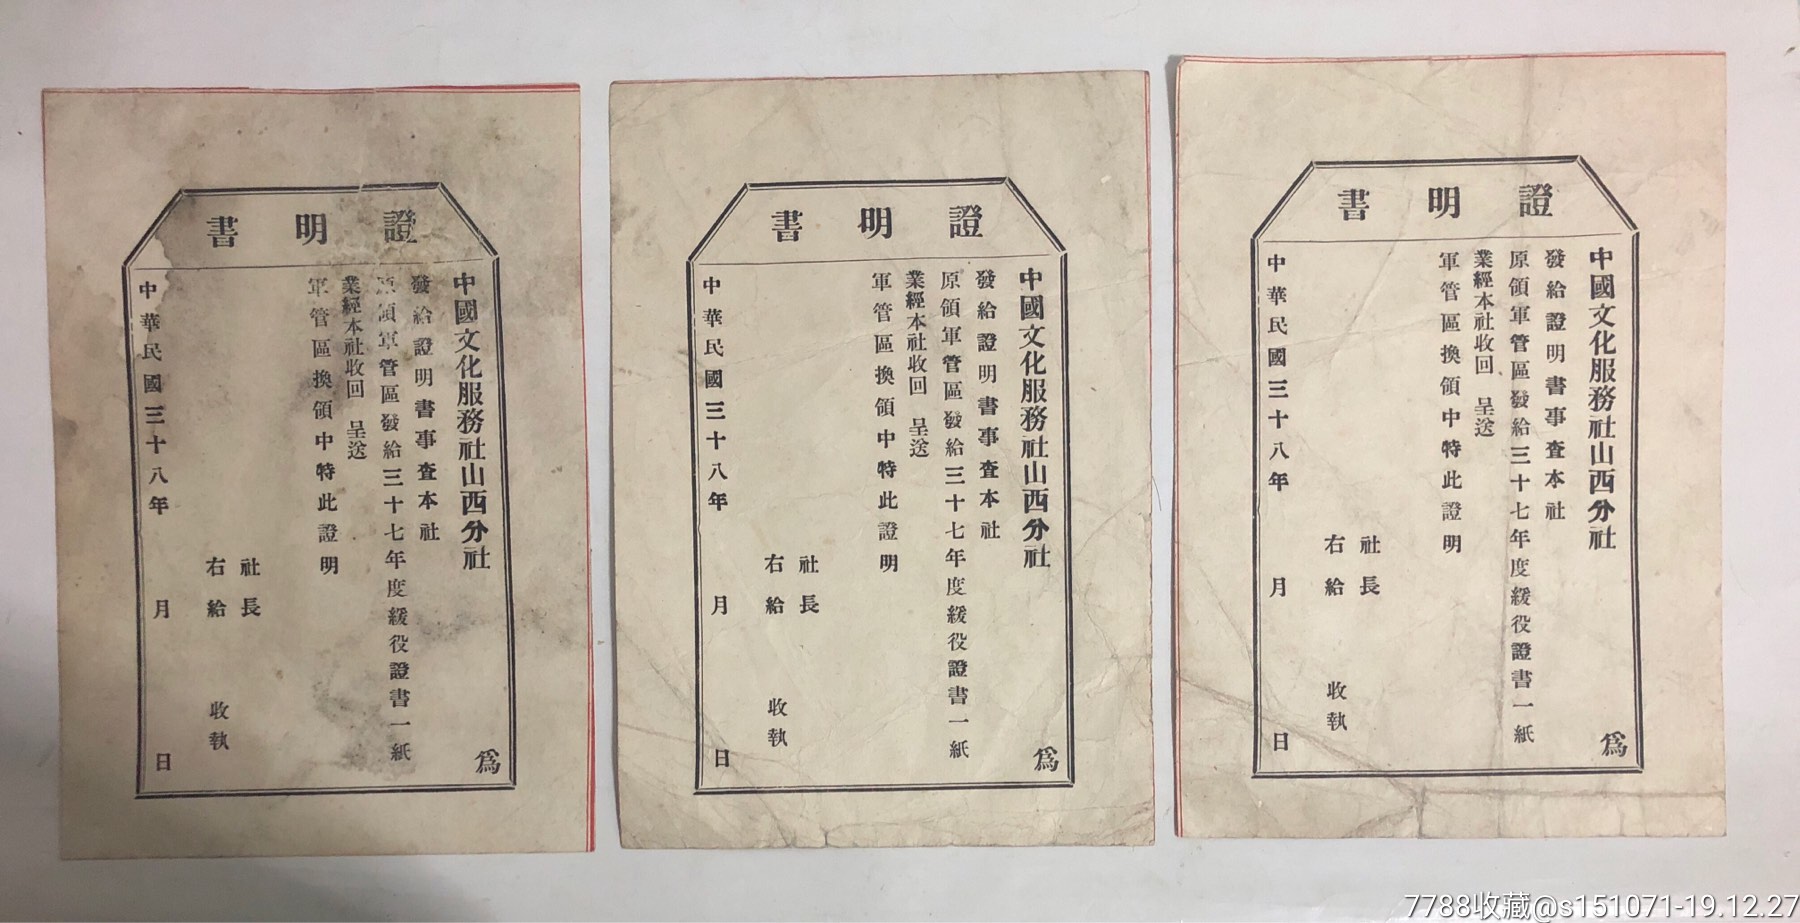 證明書
中國文化服務社山西分社 為
發給證明書事查本社
原領軍管區發給三十七年度緩役證書一紙
業經本社收回 呈送
軍管區換領中特此證明
社長
右給 收執
中華民國三十八年 月 日
證明書
中國文化服務社山西分社 為
發給證明書事查本社
原領軍管區發給三十七年度緩役證書一紙
業經本社收回 呈送
軍管區換領中特此證明
社長
右給 收執
中華民國三十八年 月 日
證明書
中國文化服務社山西分社 為
發給證明書事查本社
原領軍管區發給三十七年度緩役證書一紙
業經本社收回 呈送
軍管區換領中特此證明
社長
右給 收執
中華民國三十八年 月 日
7788收藏@s151071-19.12.27